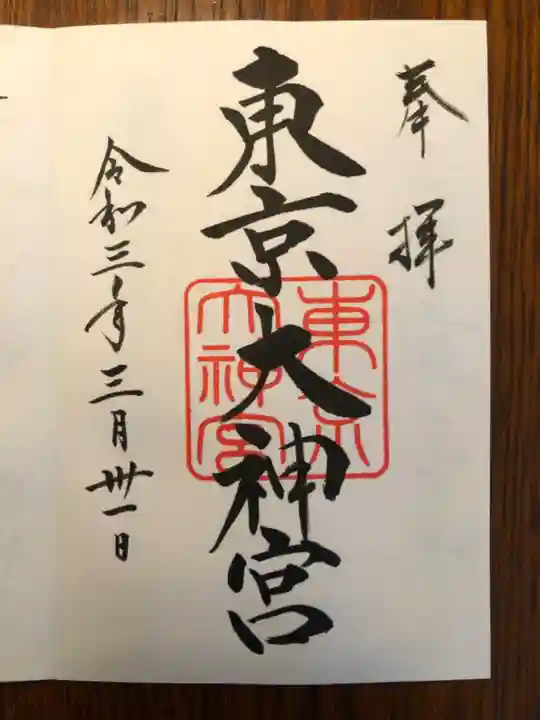 奉拝
東京大神宮
東京
大神宮
令和三年三月丗一日